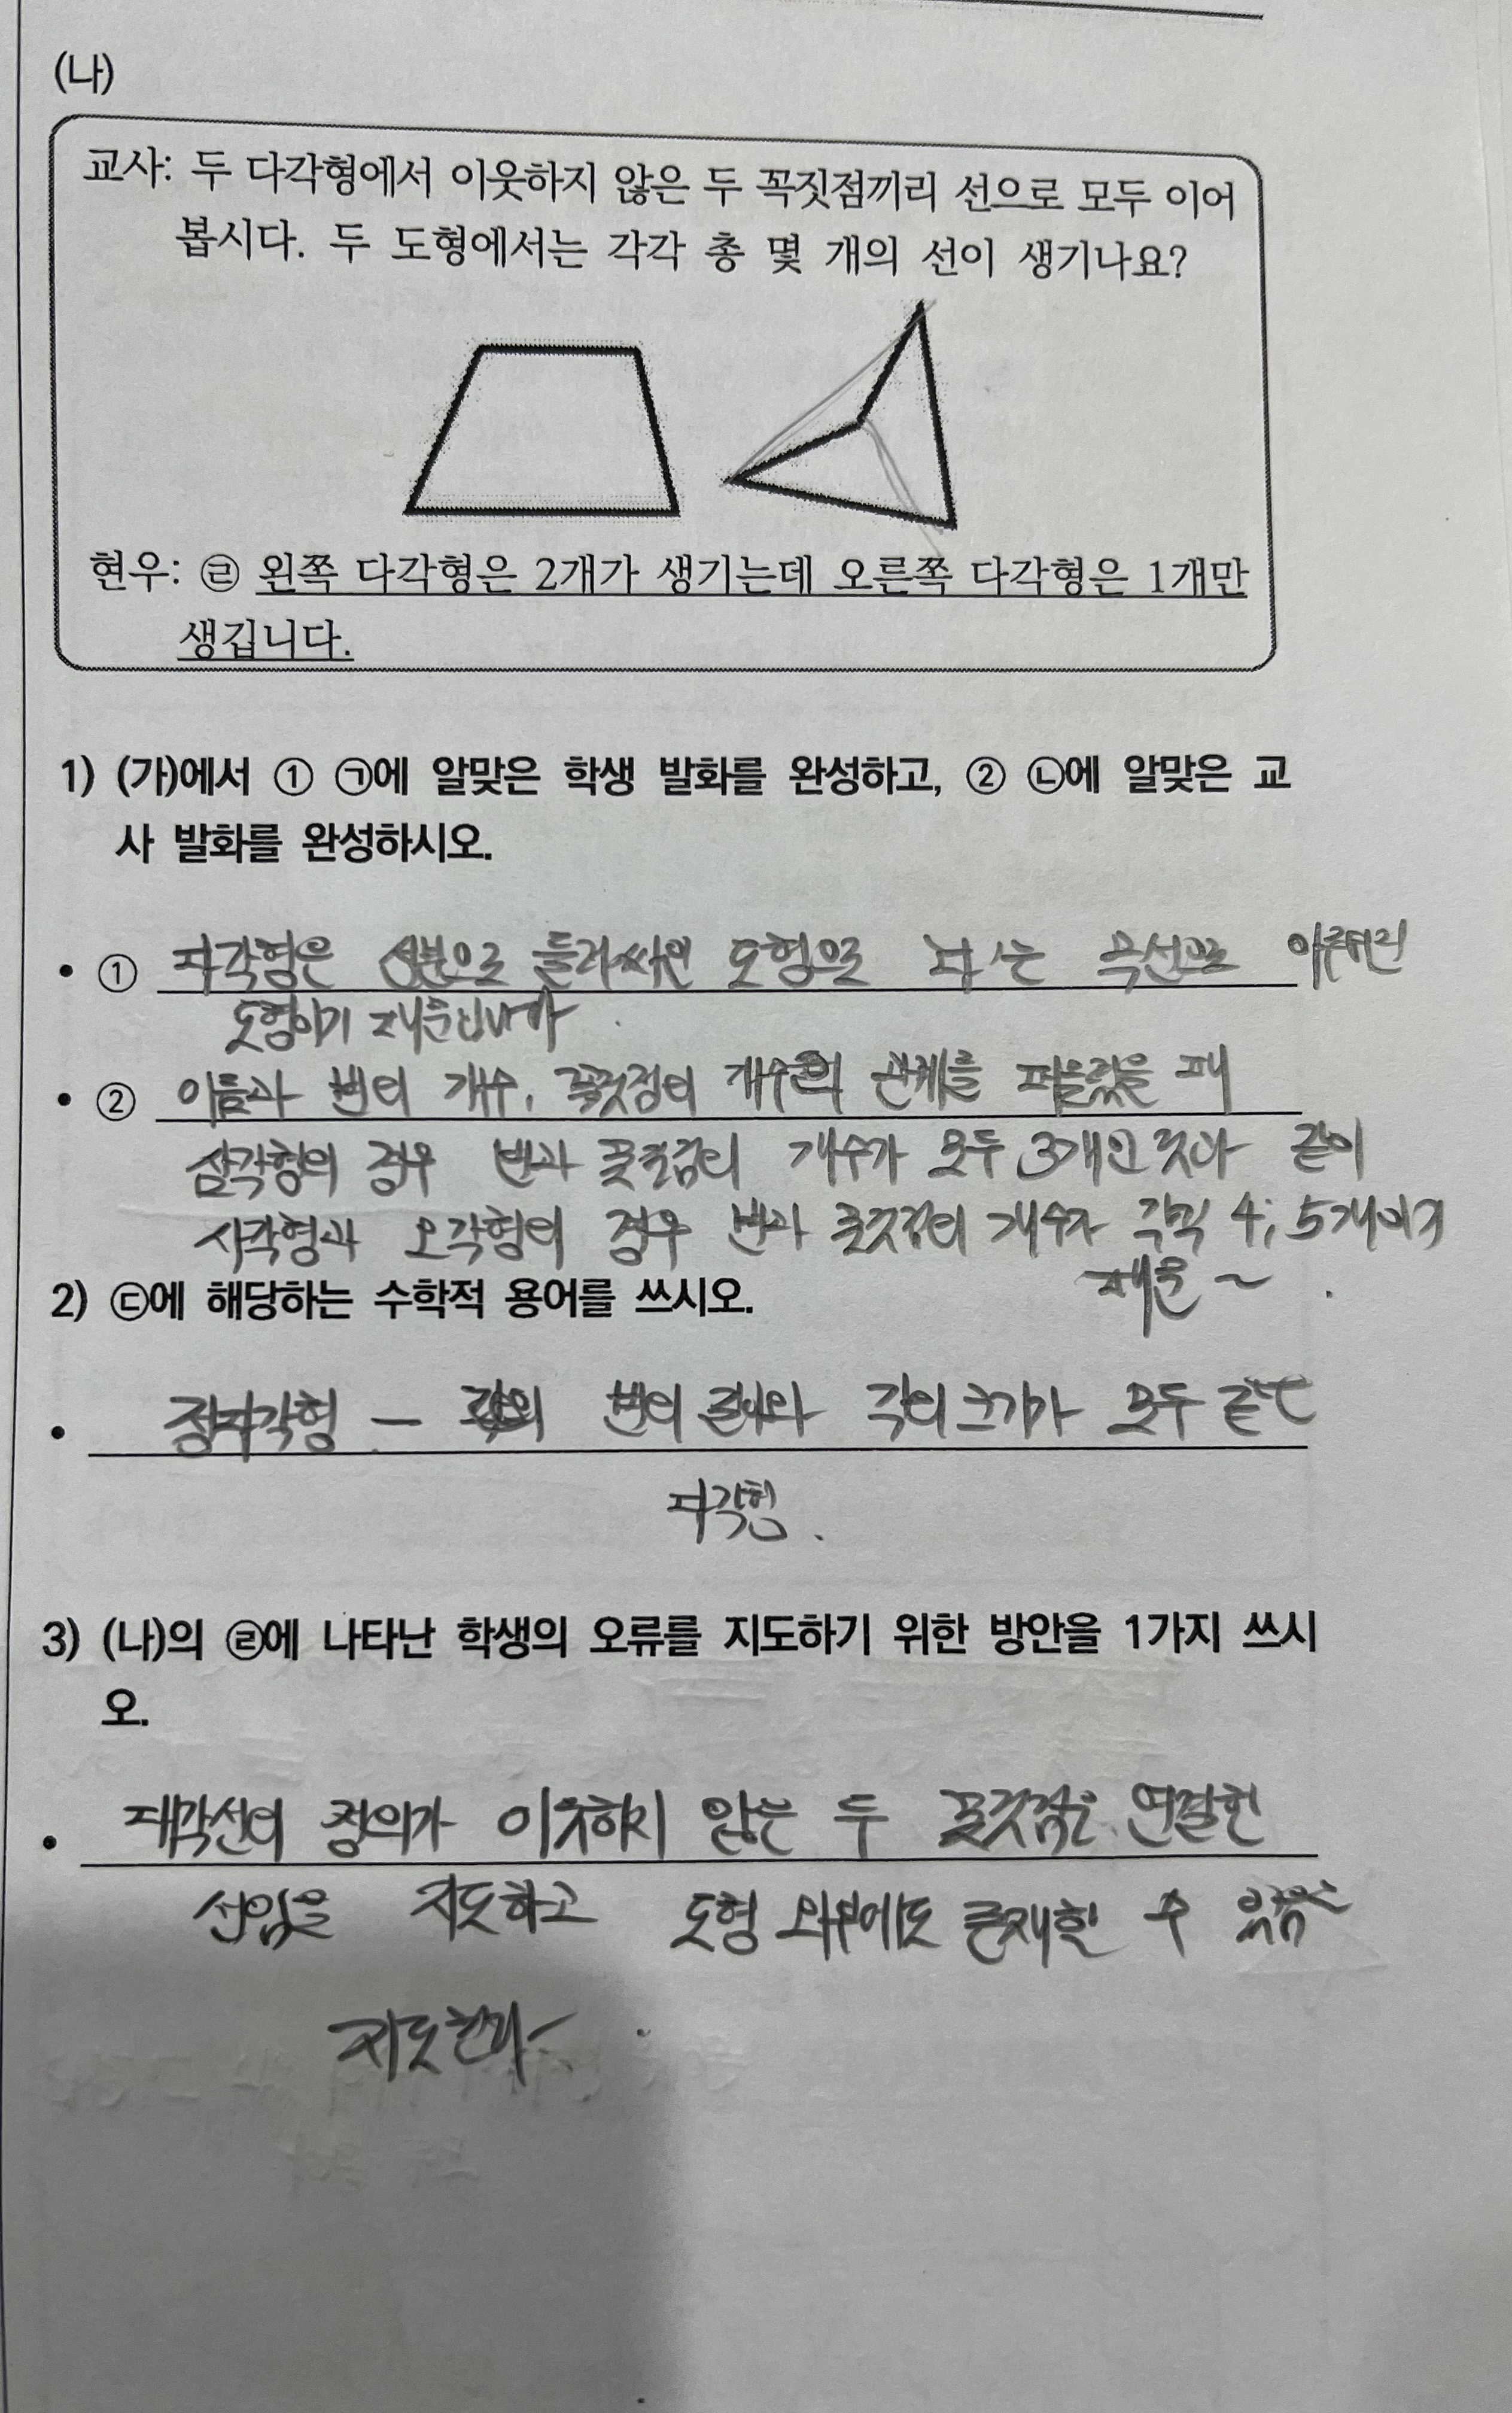 (나)
교사: 두 다각형에서 이웃하지 않은 두 꼭짓점끼리 선으로 모두 이어
봅시다. 두 도형에서는 각각 총 몇 개의 선이 생기나요?
현우: ㉣ 왼쪽 다각형은 2개가 생기는데 오른쪽 다각형은 1개만
생깁니다.
1) (가)에서 ① ㉠에 알맞은 학생 발화를 완성하고, ② ㉡에 알맞은 교
사 발화를 완성하시오.
• ① 다각형은 선분으로 둘러싸인 도형으로 는 곡선으로 이루어진
도형이기 때문입니다
• ② 이름과 변의 개수, 꼭짓점의 개수의 관계를 떠올렸을 때
삼각형의 경우 변과 꼭짓점의 개수가 모두 3개인 것과 같이
사각형과 오각형의 경우 변과 꼭짓점의 개수가 각각 4, 5개이기
때문 ~ .
2) ㉢에 해당하는 수학적 용어를 쓰시오.
• 정다각형 – 변의 길이와 각의 크기가 모두 같은
다각형.
3) (나)의 ㉣에 나타난 학생의 오류를 지도하기 위한 방안을 1가지 쓰시
오.
• 대각선의 정의가 이웃하지 않는 두 꼭짓점을 연결한
선임을 지도하고 도형 외부에도 존재할 수 있음을
지도한다.